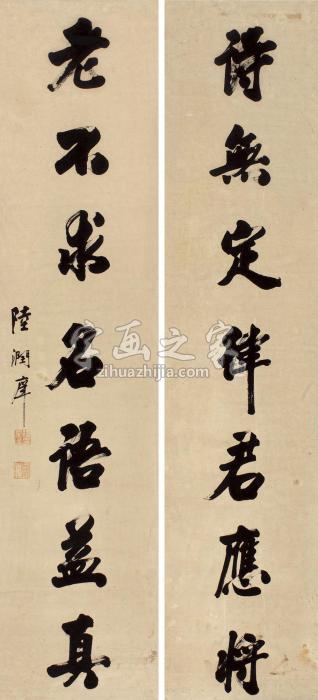 詩無定律君應將
老不求名語益真
陸潤庠
字画之家
zihuazhijia.com